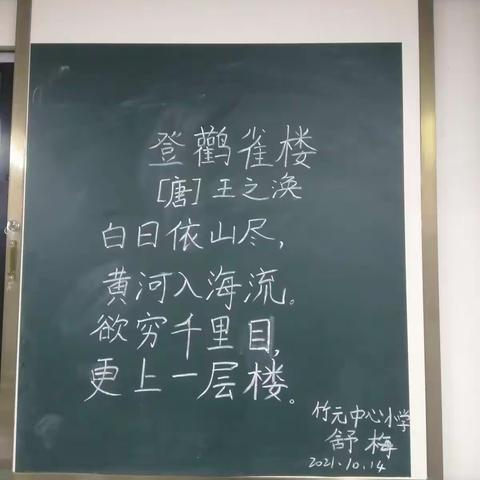 登鹳雀楼
[唐] 王之涣
白日依山尽,
黄河入海流。
欲穷千里目,
更上一层楼。
竹元中心小学
舒梅
2021.10.14